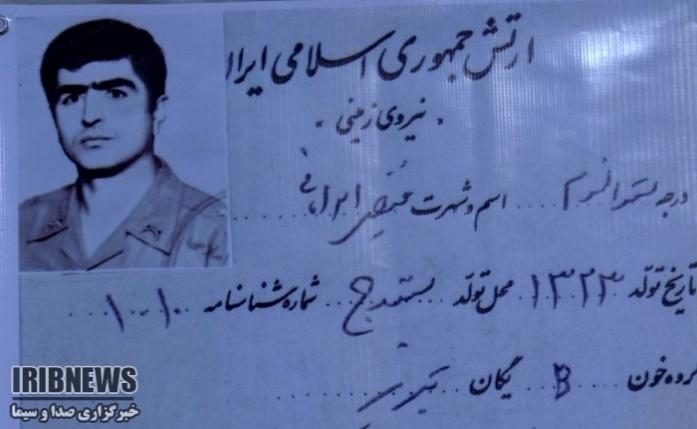 ارتش جمهوری اسلامی ایران
نیروی زمینی
درجه ستوانسوم اسم و شهرت
تاریخ تولد ۱۳۲۳ محل تولد شماره شناسنامه ۱۰۱۰
گروه خون B یگان
IRIBNEWS
خبرگزاری صدا و سیما